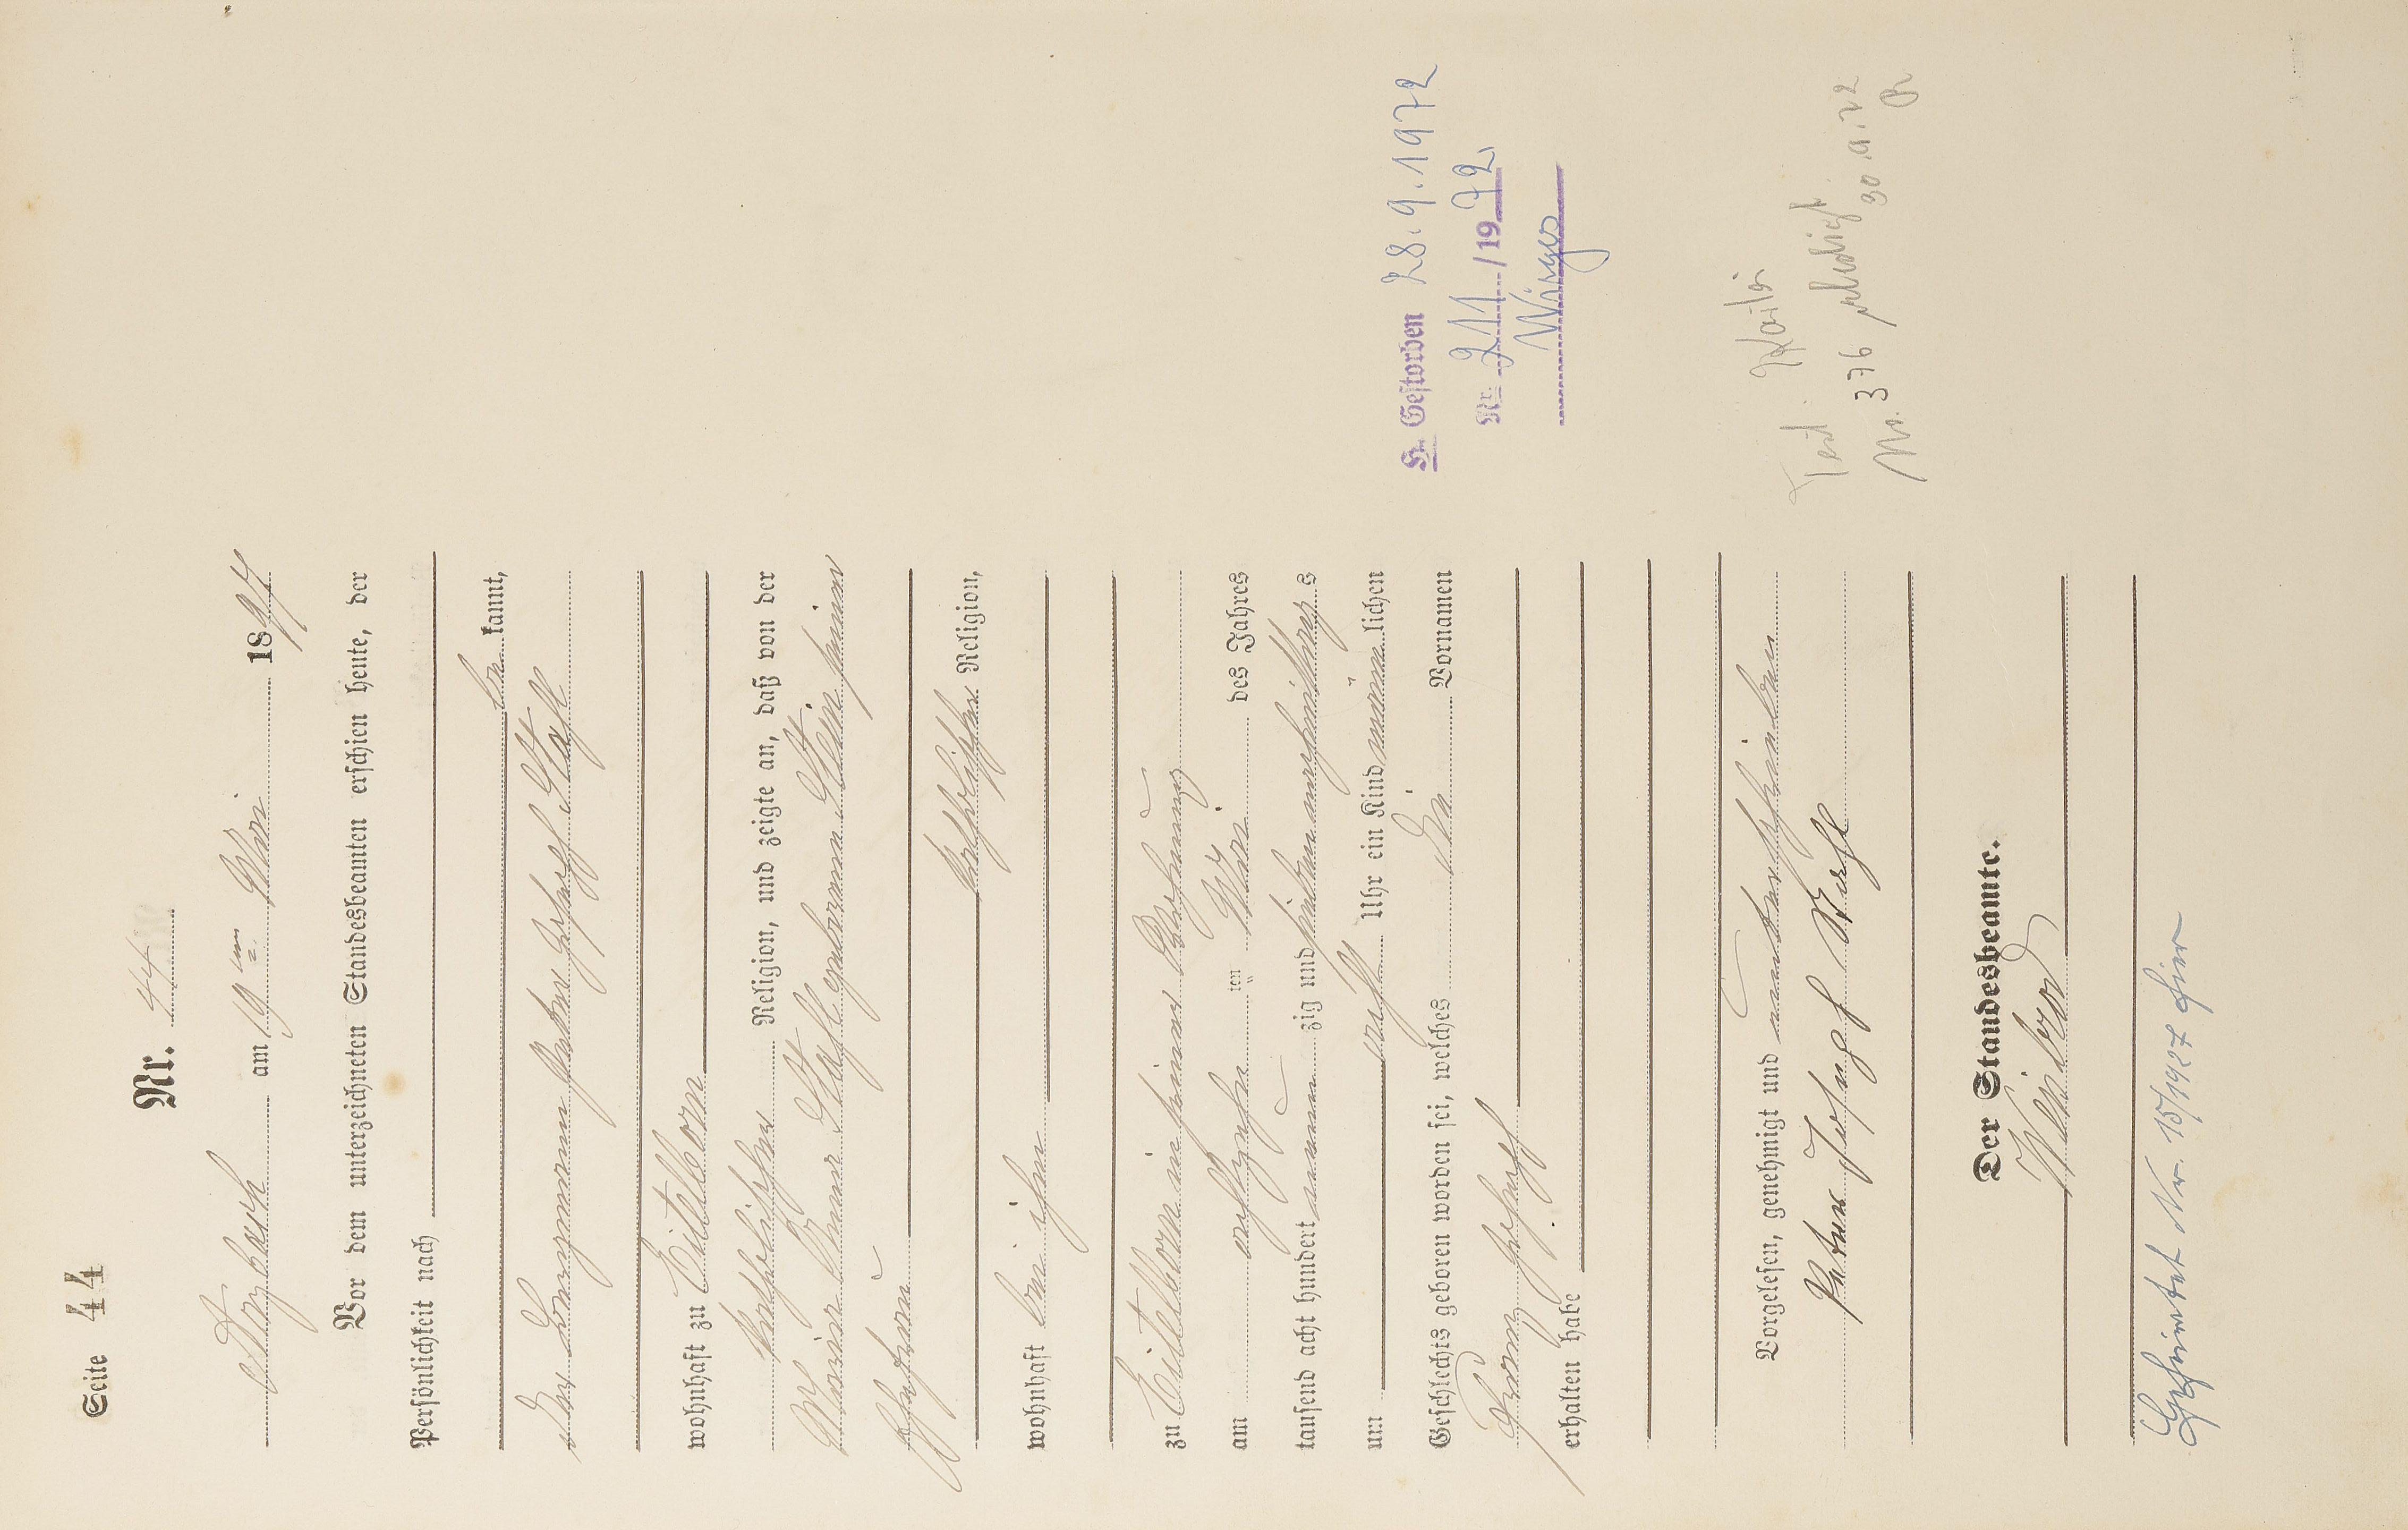 Seite 44
Nr. 44
Arzbach am 19ten Mai 1897
Vor dem unterzeichneten Standesbeamten erschien heute, der
Persönlichkeit nach
be kannt,
der Bergmann Peter Joseph
wohnhaft zu Eitelborn
katholischer Religion, und zeigte an, daß von der
Maria Anna geborenen Stein seiner
Ehefrau
katholischer Religion,
wohnhaft bei ihm
zu Eitelborn in seiner Wohnung
am achtzehn ten Mai des Jahres
tausend acht hundert neun zig und sieben
um acht Uhr ein Kind männ lichen
Geschlechts geboren worden sei, welches die Vornamen
Franz Josef
erhalten habe
Vorgelesen, genehmigt und unterschrieben
Peter Josef
Der Standesbeamte.
Geheiratet Nr. 15/1927 hier
H. Gestorben 28.9.1972
Nr. 211 / 19 72
Wirges
Test.
Nr. 376
30.9.72